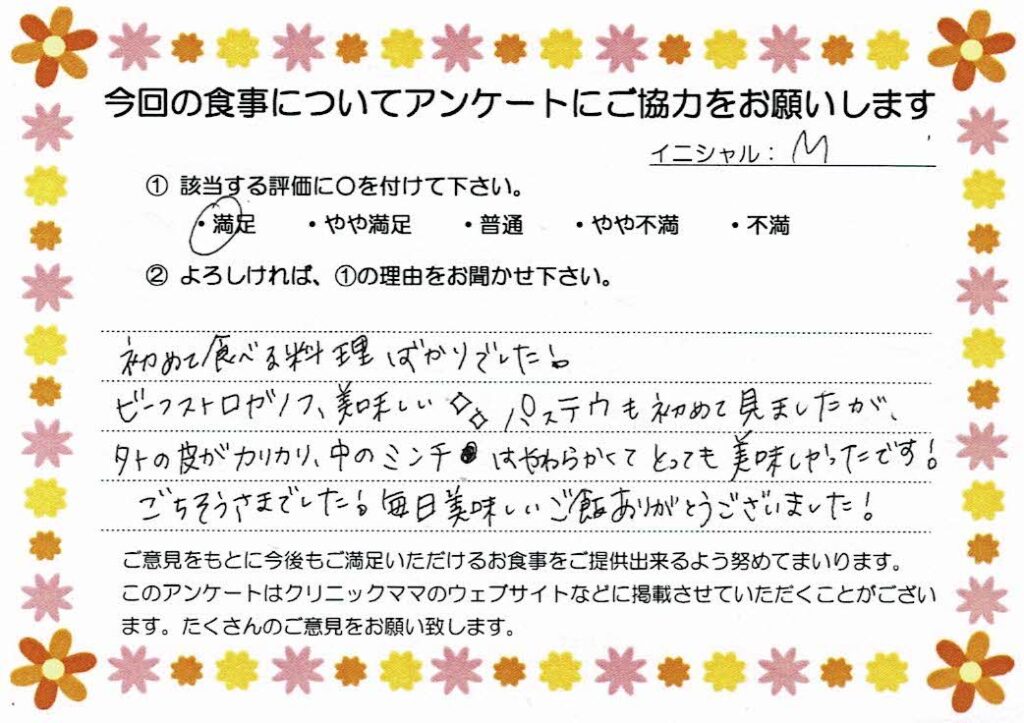 今回の食事についてアンケートにご協力をお願いします
イニシャル： M
① 該当する評価に〇を付けて下さい。
・満足 ・やや満足 ・普通 ・やや不満 ・不満
② よろしければ、①の理由をお聞かせ下さい。
初めて食べる料理ばかりでした!
ビーフストロガノフ、美味しい パステウも初めて見ましたが、
外の皮がカリカリ、中のミンチはやわらかくてとっても美味しかったです!
ごちそうさまでした! 毎日美味しいご飯ありがとうございました!
ご意見をもとに今後もご満足いただけるお食事をご提供出来るよう努めてまいります。
このアンケートはクリニックママのウェブサイトなどに掲載させていただくことがござい
ます。たくさんのご意見をお願い致します。